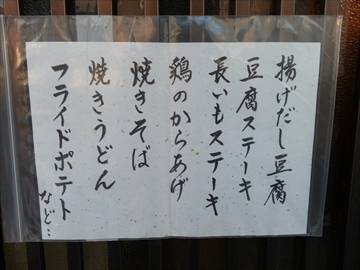 揚げだし豆腐
豆腐ステーキ
長いもステーキ
鶏のからあげ
焼きそば
焼きうどん
フライドポテト
など…